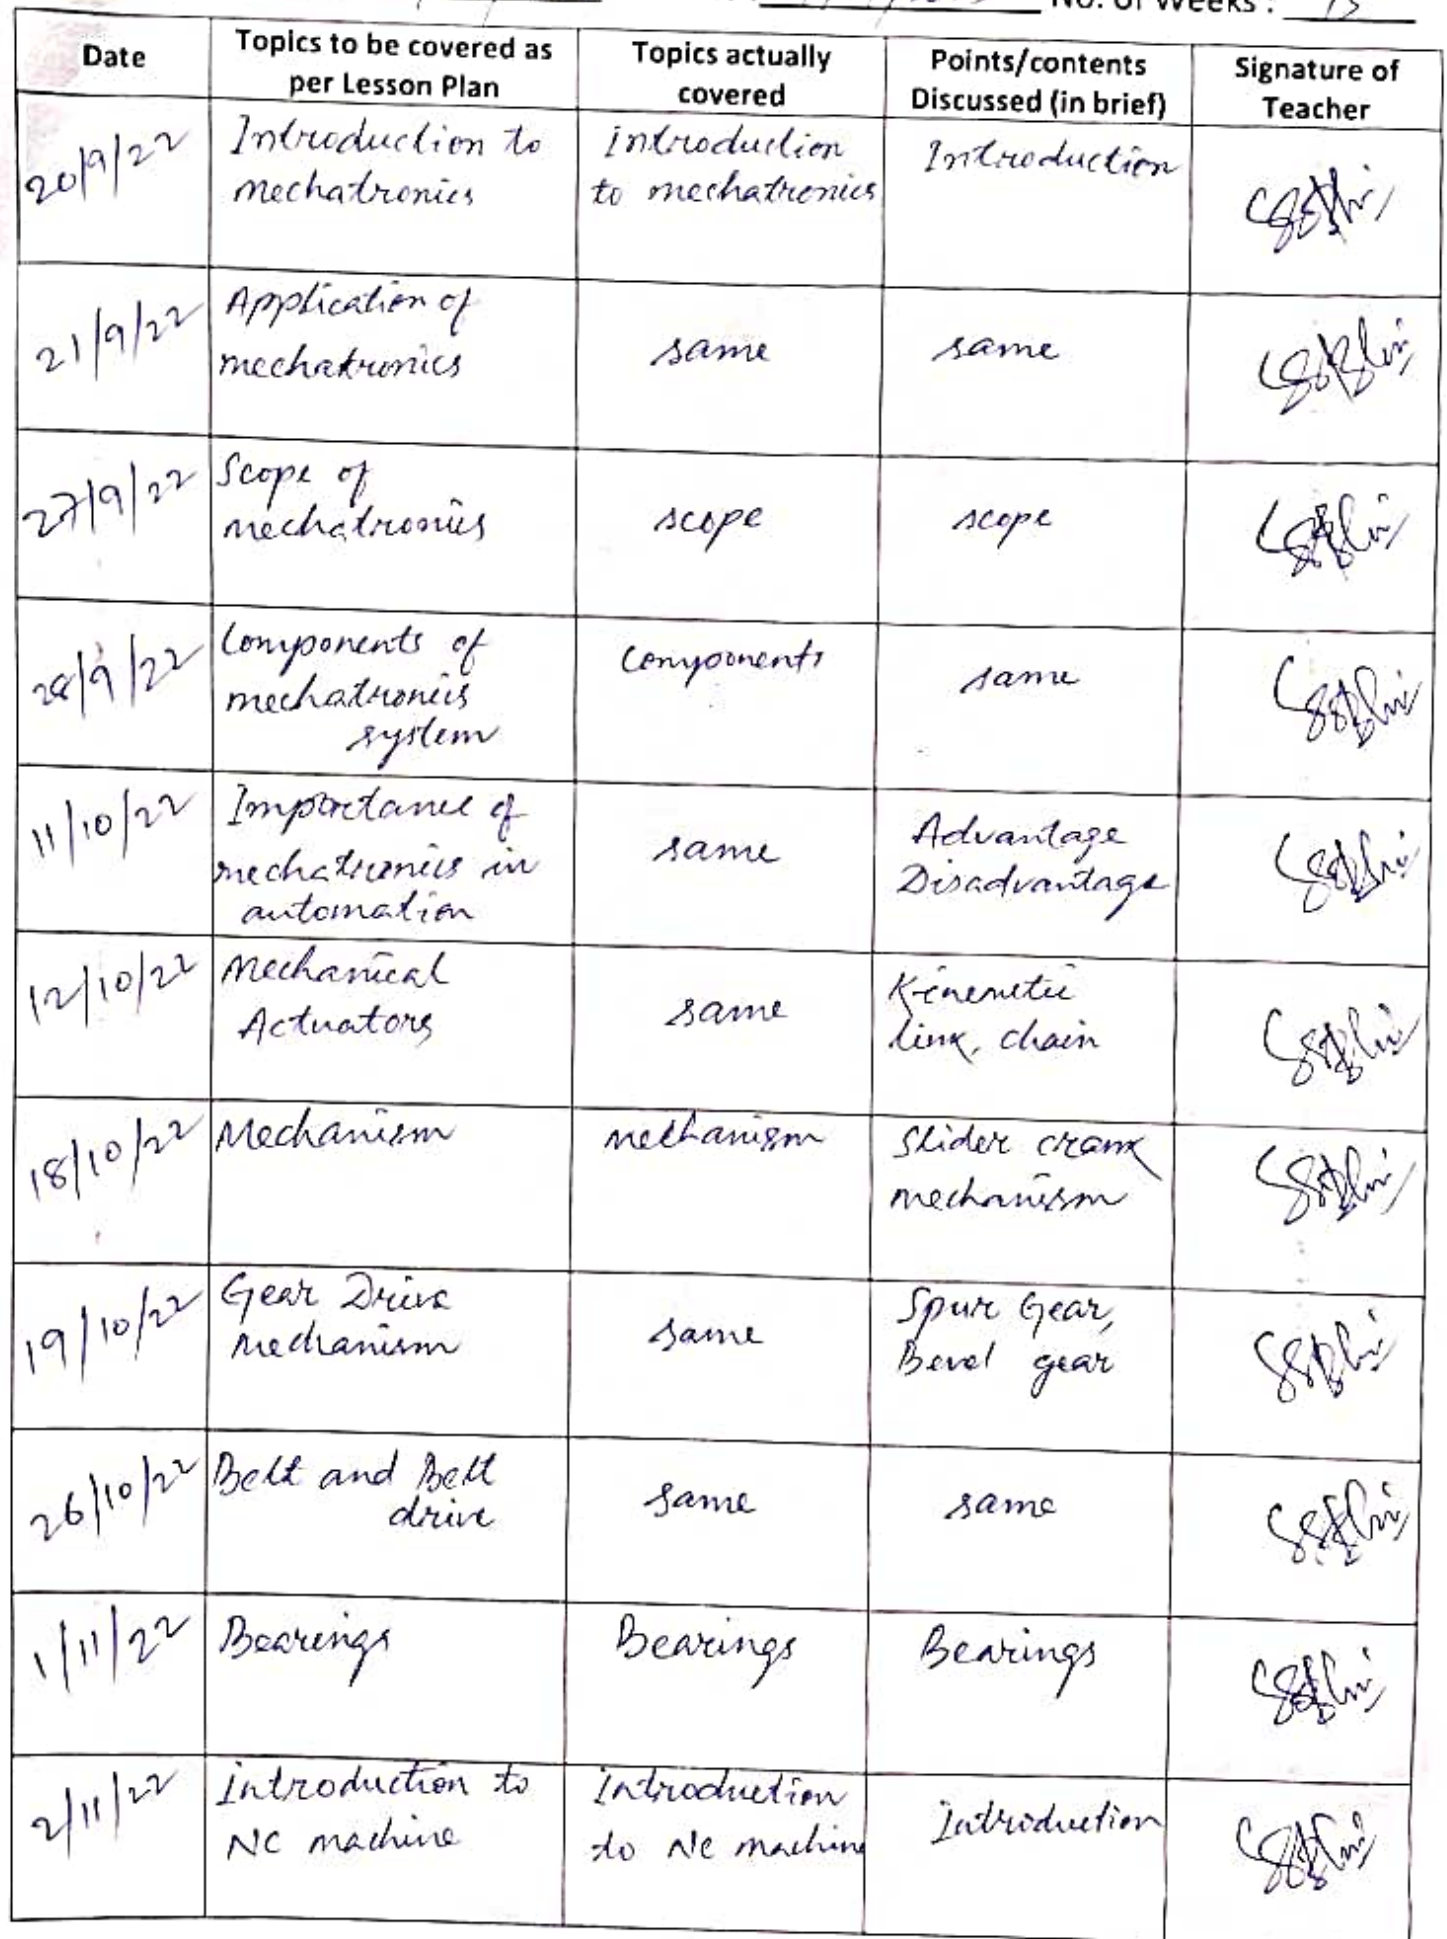 No. of Weeks : 15
Date
Topics to be covered as
per Lesson Plan
Topics actually
covered
Points/contents
Discussed (in brief)
Signature of
Teacher
20/9/22
Introduction to
mechatronics
Introduction
to mechatronics
Introduction
21/9/22
Application of
mechatronics
same
same
27/9/22
Scope of
mechatronics
scope
scope
28/9/22
Components of
mechatronics
system
Components
same
11/10/22
Importance of
mechatronics in
automation
same
Advantage
Disadvantage
12/10/22
Mechanical
Actuators
same
Kinemetic
link, chain
18/10/22
Mechanism
mechanism
Slider crank
mechanism
19/10/22
Gear Drive
mechanism
same
Spur Gear,
Bevel gear
26/10/22
Belt and Belt
drive
same
same
1/11/22
Bearings
Bearings
Bearings
2/11/22
Introduction to
NC machine
Introduction
to NC machine
Introduction